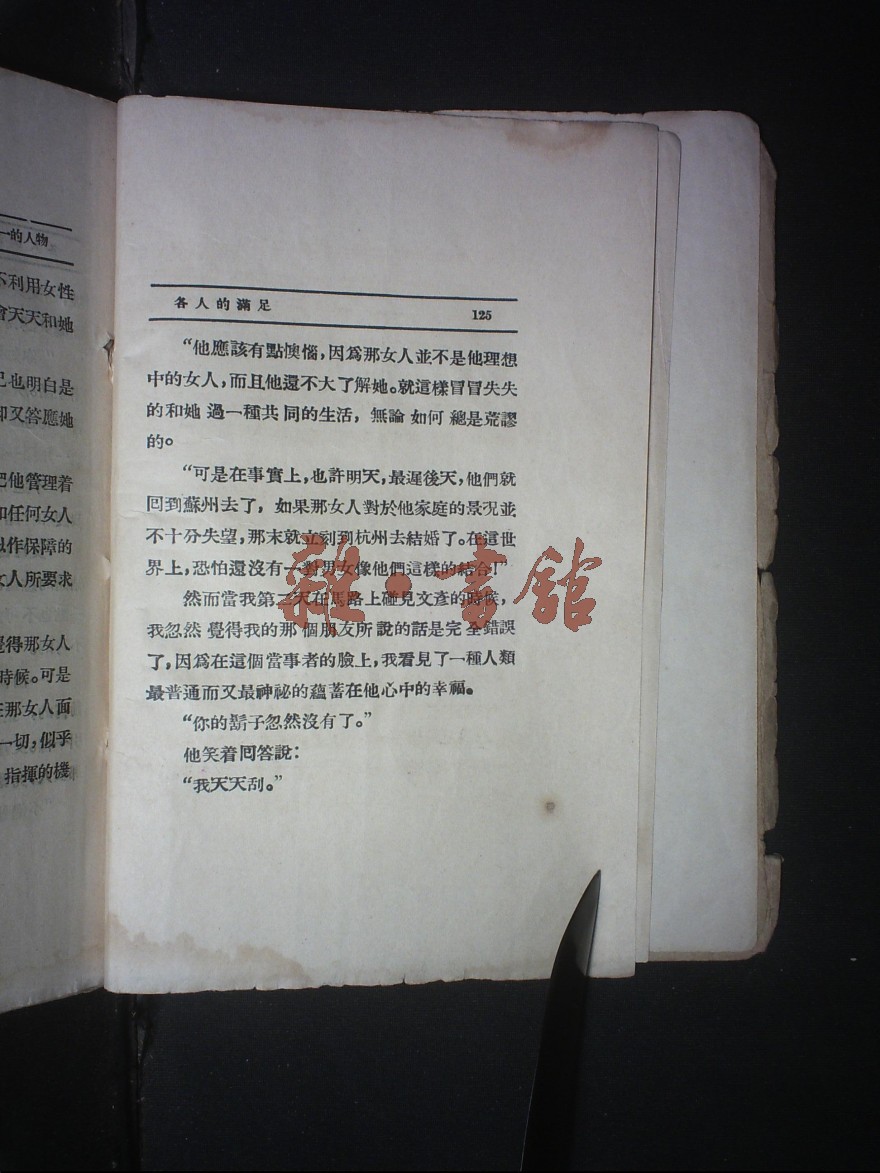 一的人物
不利用女性
會天天和她
己也明白是
却又答應她
把他管理着
和任何女人
以作保障的
女人所要求
覺得那女人
時候。可是
在那女人面
一切,似乎
指揮的機
各人的滿足
125
“他應該有點懊惱,因爲那女人並不是他理想
中的女人,而且他還不大了解她。就這樣冒冒失失
的和她過一種共同的生活,無論如何總是荒謬
的。
“可是在事實上,也許明天,最遲後天,他們就
回到蘇州去了,如果那女人對於他家庭的景况並
不十分失望,那末就立刻到杭州去結婚了。在這世
界上,恐怕還沒有一對男女像他們這樣的結合!”
然而當我第二天在馬路上碰見文彥的時候,
我忽然覺得我的那個朋友所說的話是完全錯誤
了,因爲在這個當事者的臉上,我看見了一種人類
最普通而又最神祕的蘊蓄在他心中的幸福。
“你的鬍子忽然沒有了。”
他笑着回答說:
“我天天刮。”
雜·書館